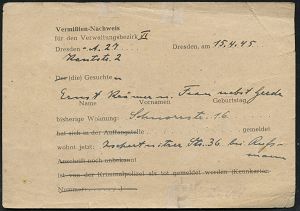 Vermißten-Nachweis
für den Verwaltungsbezirk VI
Dresden - A. 27 Dresden, am 15.4.45
2
Der (die) Gesuchte:
Ernst u. Frau nebst Gerda
Name Vornamen Geburtstag
bisherige Wohnung: Schnorrstr. 16
hat sich in der Auffangstelle gemeldet
wohnt jetzt: Str. 36 bei
mann
Anschrift noch unbekannt
ist von der Kriminalpolizei als tot gemeldet worden (Kennkarten-
Nummer )